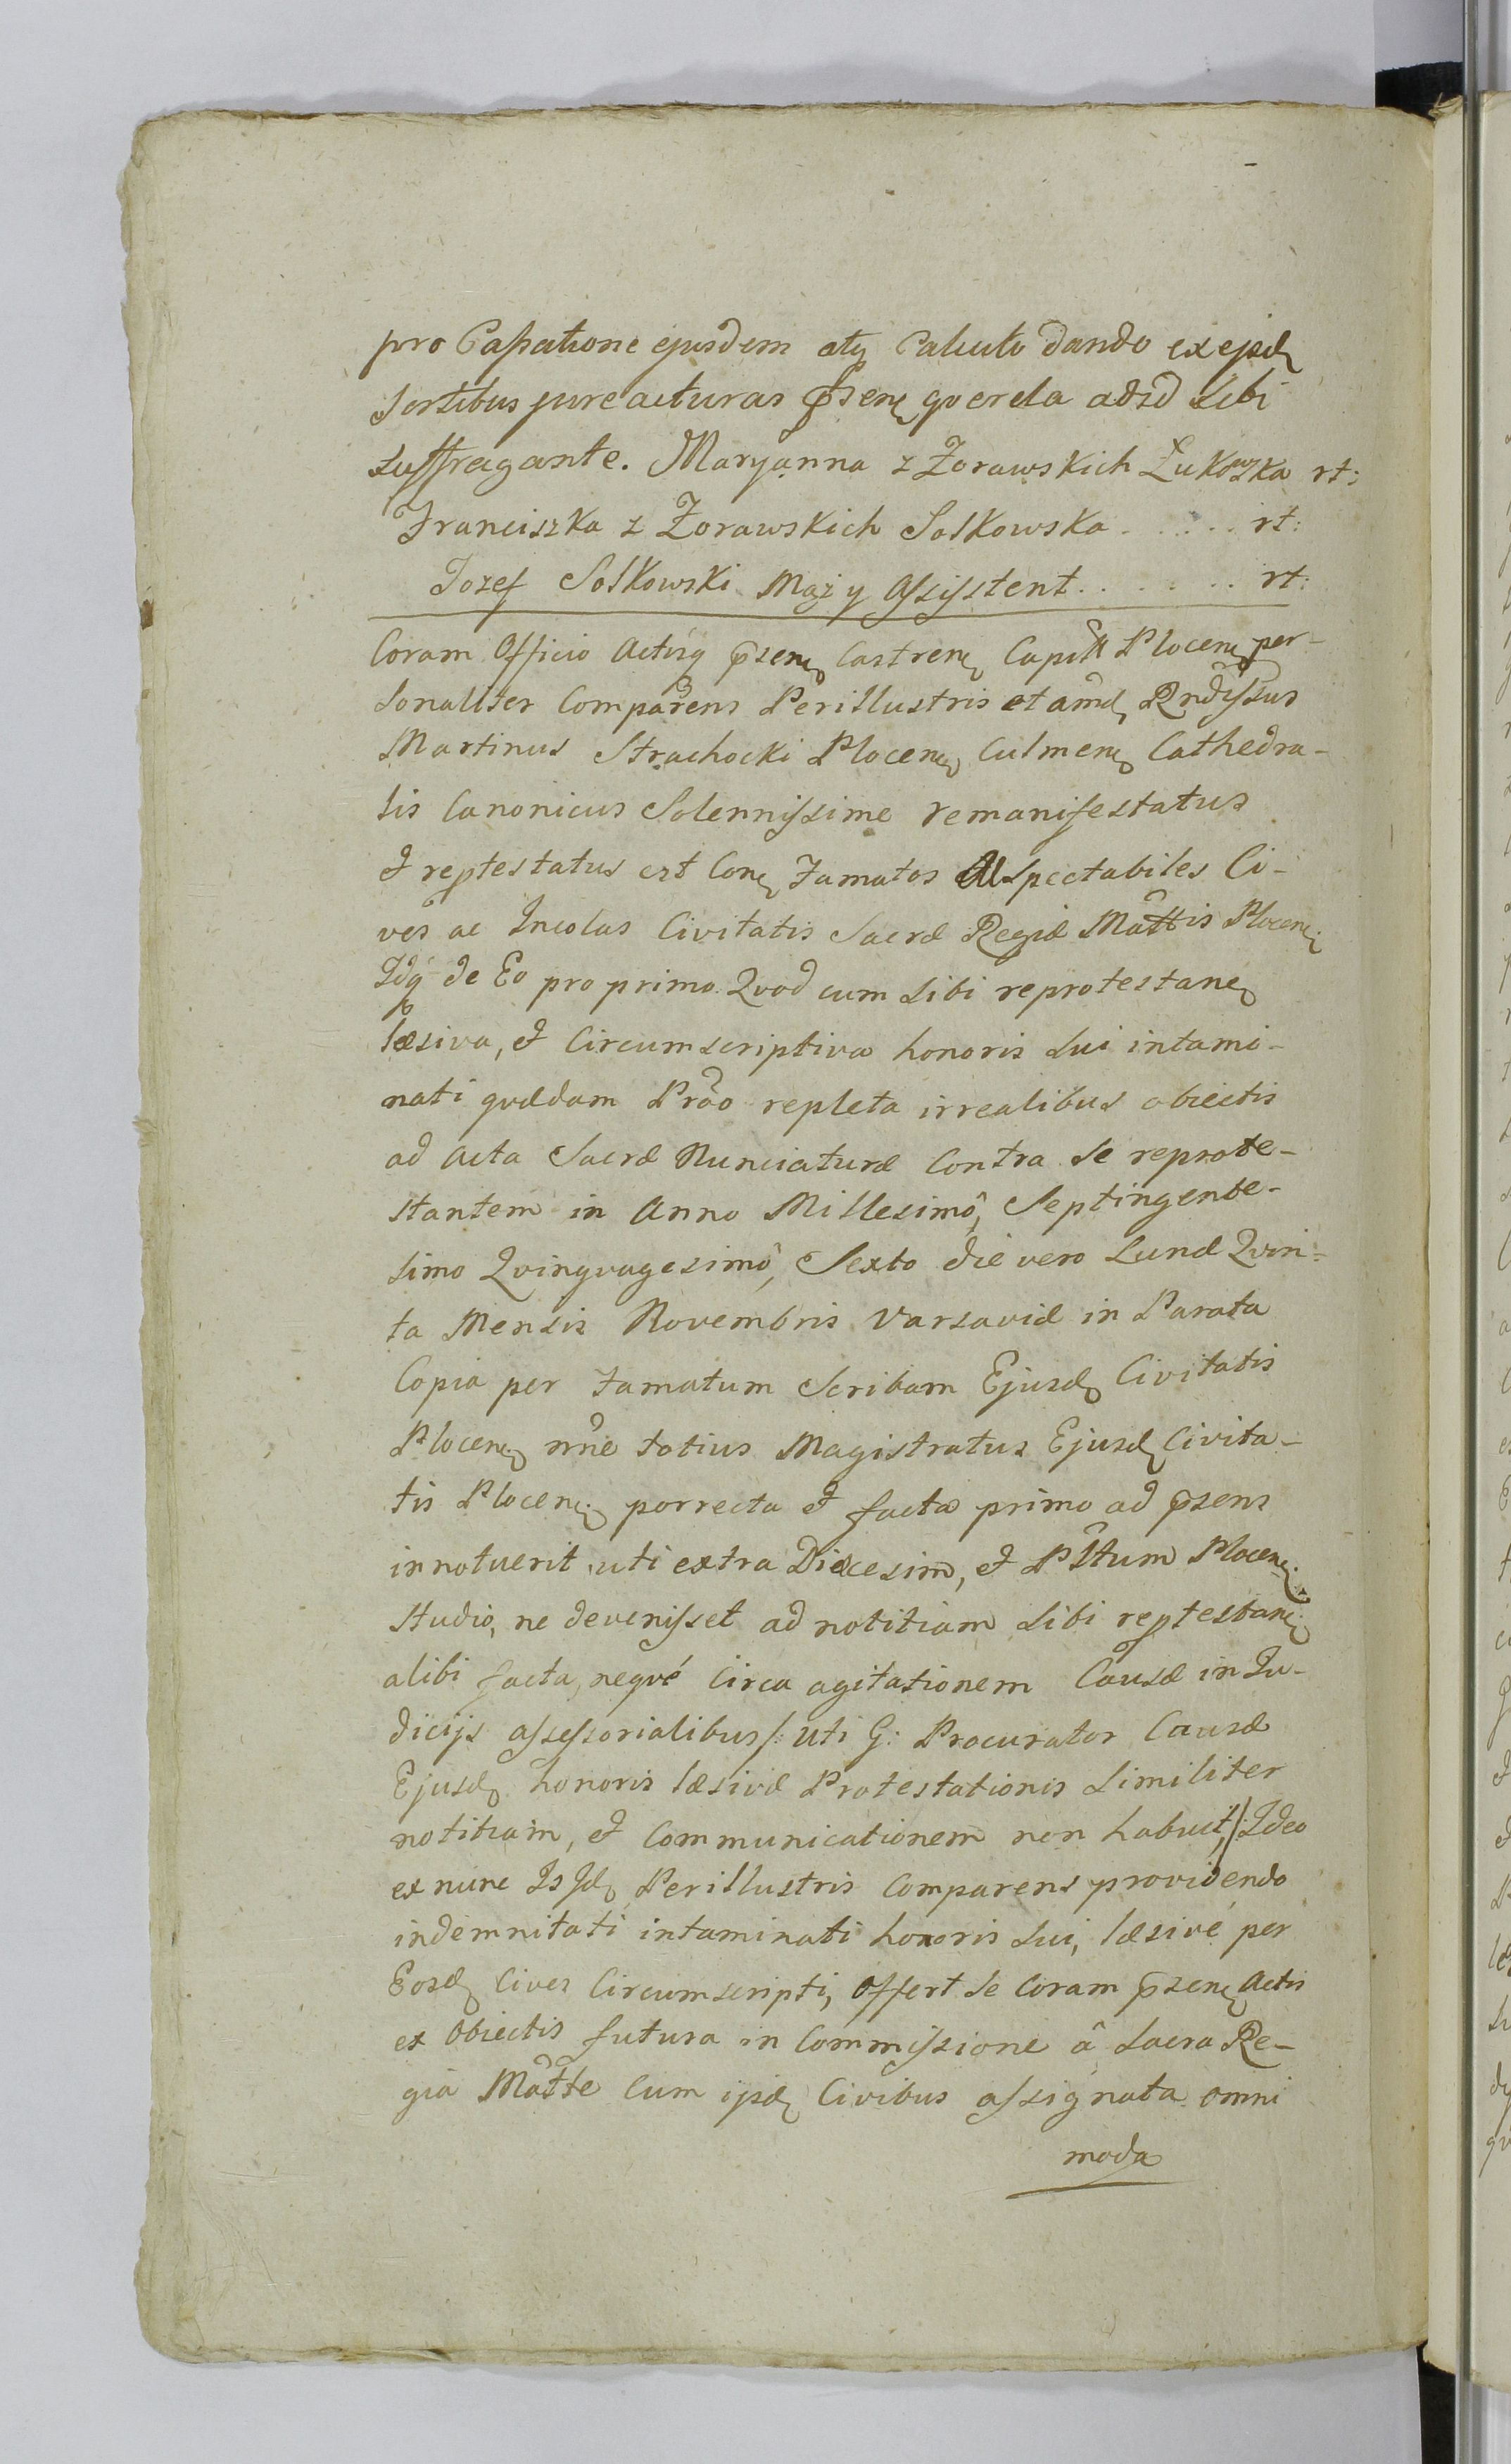 pro Cassatione ejusdem atq Calculo dando ex ejsd
Sortibus jure acturas Psenę qverela adid sibi
suffragante. Maryanna z Żorawskich Łukowska rt:
Franciszka z Żorawskich Sołkowska . . . . . rt:
Jozef Sołkowski Mąż y Assystent . . . . . . . rt:
Coram Officio Actisq psen Castren Capitli Plocen per-
sonaliter Comparens Perillustris et amd Rndissus
Martinus Strachocki Plocen, Culmen Cathedra-
lis Canonicus Solennissime remanifestatus
et reptestatus est Con Famatos ac Spectabiles Ci-
ves ac Incolas Civitatis Sacræ Regiæ Mattis Plocen.
Idq de Eo pro primo Qvod cum sibi reprotestan
læsiva, et Circumscriptiva honoris sui intami-
nati qvædam Prao repleta irrealibus obiectis
ad Acta Sacræ Nunciaturæ Contra se reprote-
stantem in Anno Millesimô, Septingente-
simo Qvinqvagesimô, Sexto die vero Lunæ Qvin-
ta Mensis Novembris Varsaviæ in Parata
Copia per Famatum Scribam Ejusd Civitatis
Plocen. nne totius Magistratus Ejusd Civita-
tis Plocen. porrecta et facta primo ad psens
innotuerit, uti extra Diæcesim, et Plttum Plocen.
studio, ne devenisset ad notitiam sibi reptestan.
alibi facta, neqvé Circa agitationem Causæ in Ju-
dicijs assessorialibus /: uti G: Procurator Causæ
Ejusd honoris læsivæ Protestationis similiter
notitiam, et Communicationem non habuit, /: Ideo
ex nunc Isd Perillustris Comparens providendo
indemnitati intaminati honoris sui, læsivé per
Eosd Cives Circumscripti, Offert se Coram psen Actis
ex Obiectis futura in Commissione â Sacra Re-
gia Matte Cum ipsd Civibus assignata omni
moda